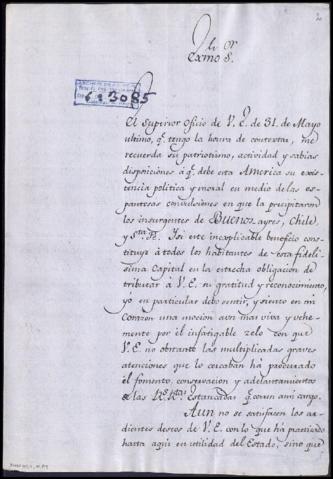 Exmo S.or
2
613085
El Superior Oficio de V. E. de 31. de Mayo
ultimo, q.e tengo la honra de contextar, me
recuerda su patriotismo, actividad y sabias
disposiciones á q.e debe esta America su exis-
tencia politica y moral en medio de las es-
pantosas convulsiones en que la precipitaron
los insurgentes de Buenos ayres, Chile,
y S.ta Fé. Si este inexplicable beneficio cons-
tituye à todos los habitantes de esta fideli-
sima Capital en la estrecha obligacion de
tributar à V. E. su gratitud y reconocimiento,
yó en particular debo sentir, y siento en mi
corazon una mocion aun mas viva y vehe-
mente por el infatigable zelo con que
V. E. no obstante las multiplicadas graves
atenciones que lo cercaban há procurado
el fomento, conservacion y adelantamientos
de las R.s R.tas Estancadas q.e corren à mi cargo.
Aun no se satisfacen los ar-
dientes deseos de V. E. con lo que há practicado
hasta aqui en utilidad del Estado, sino que